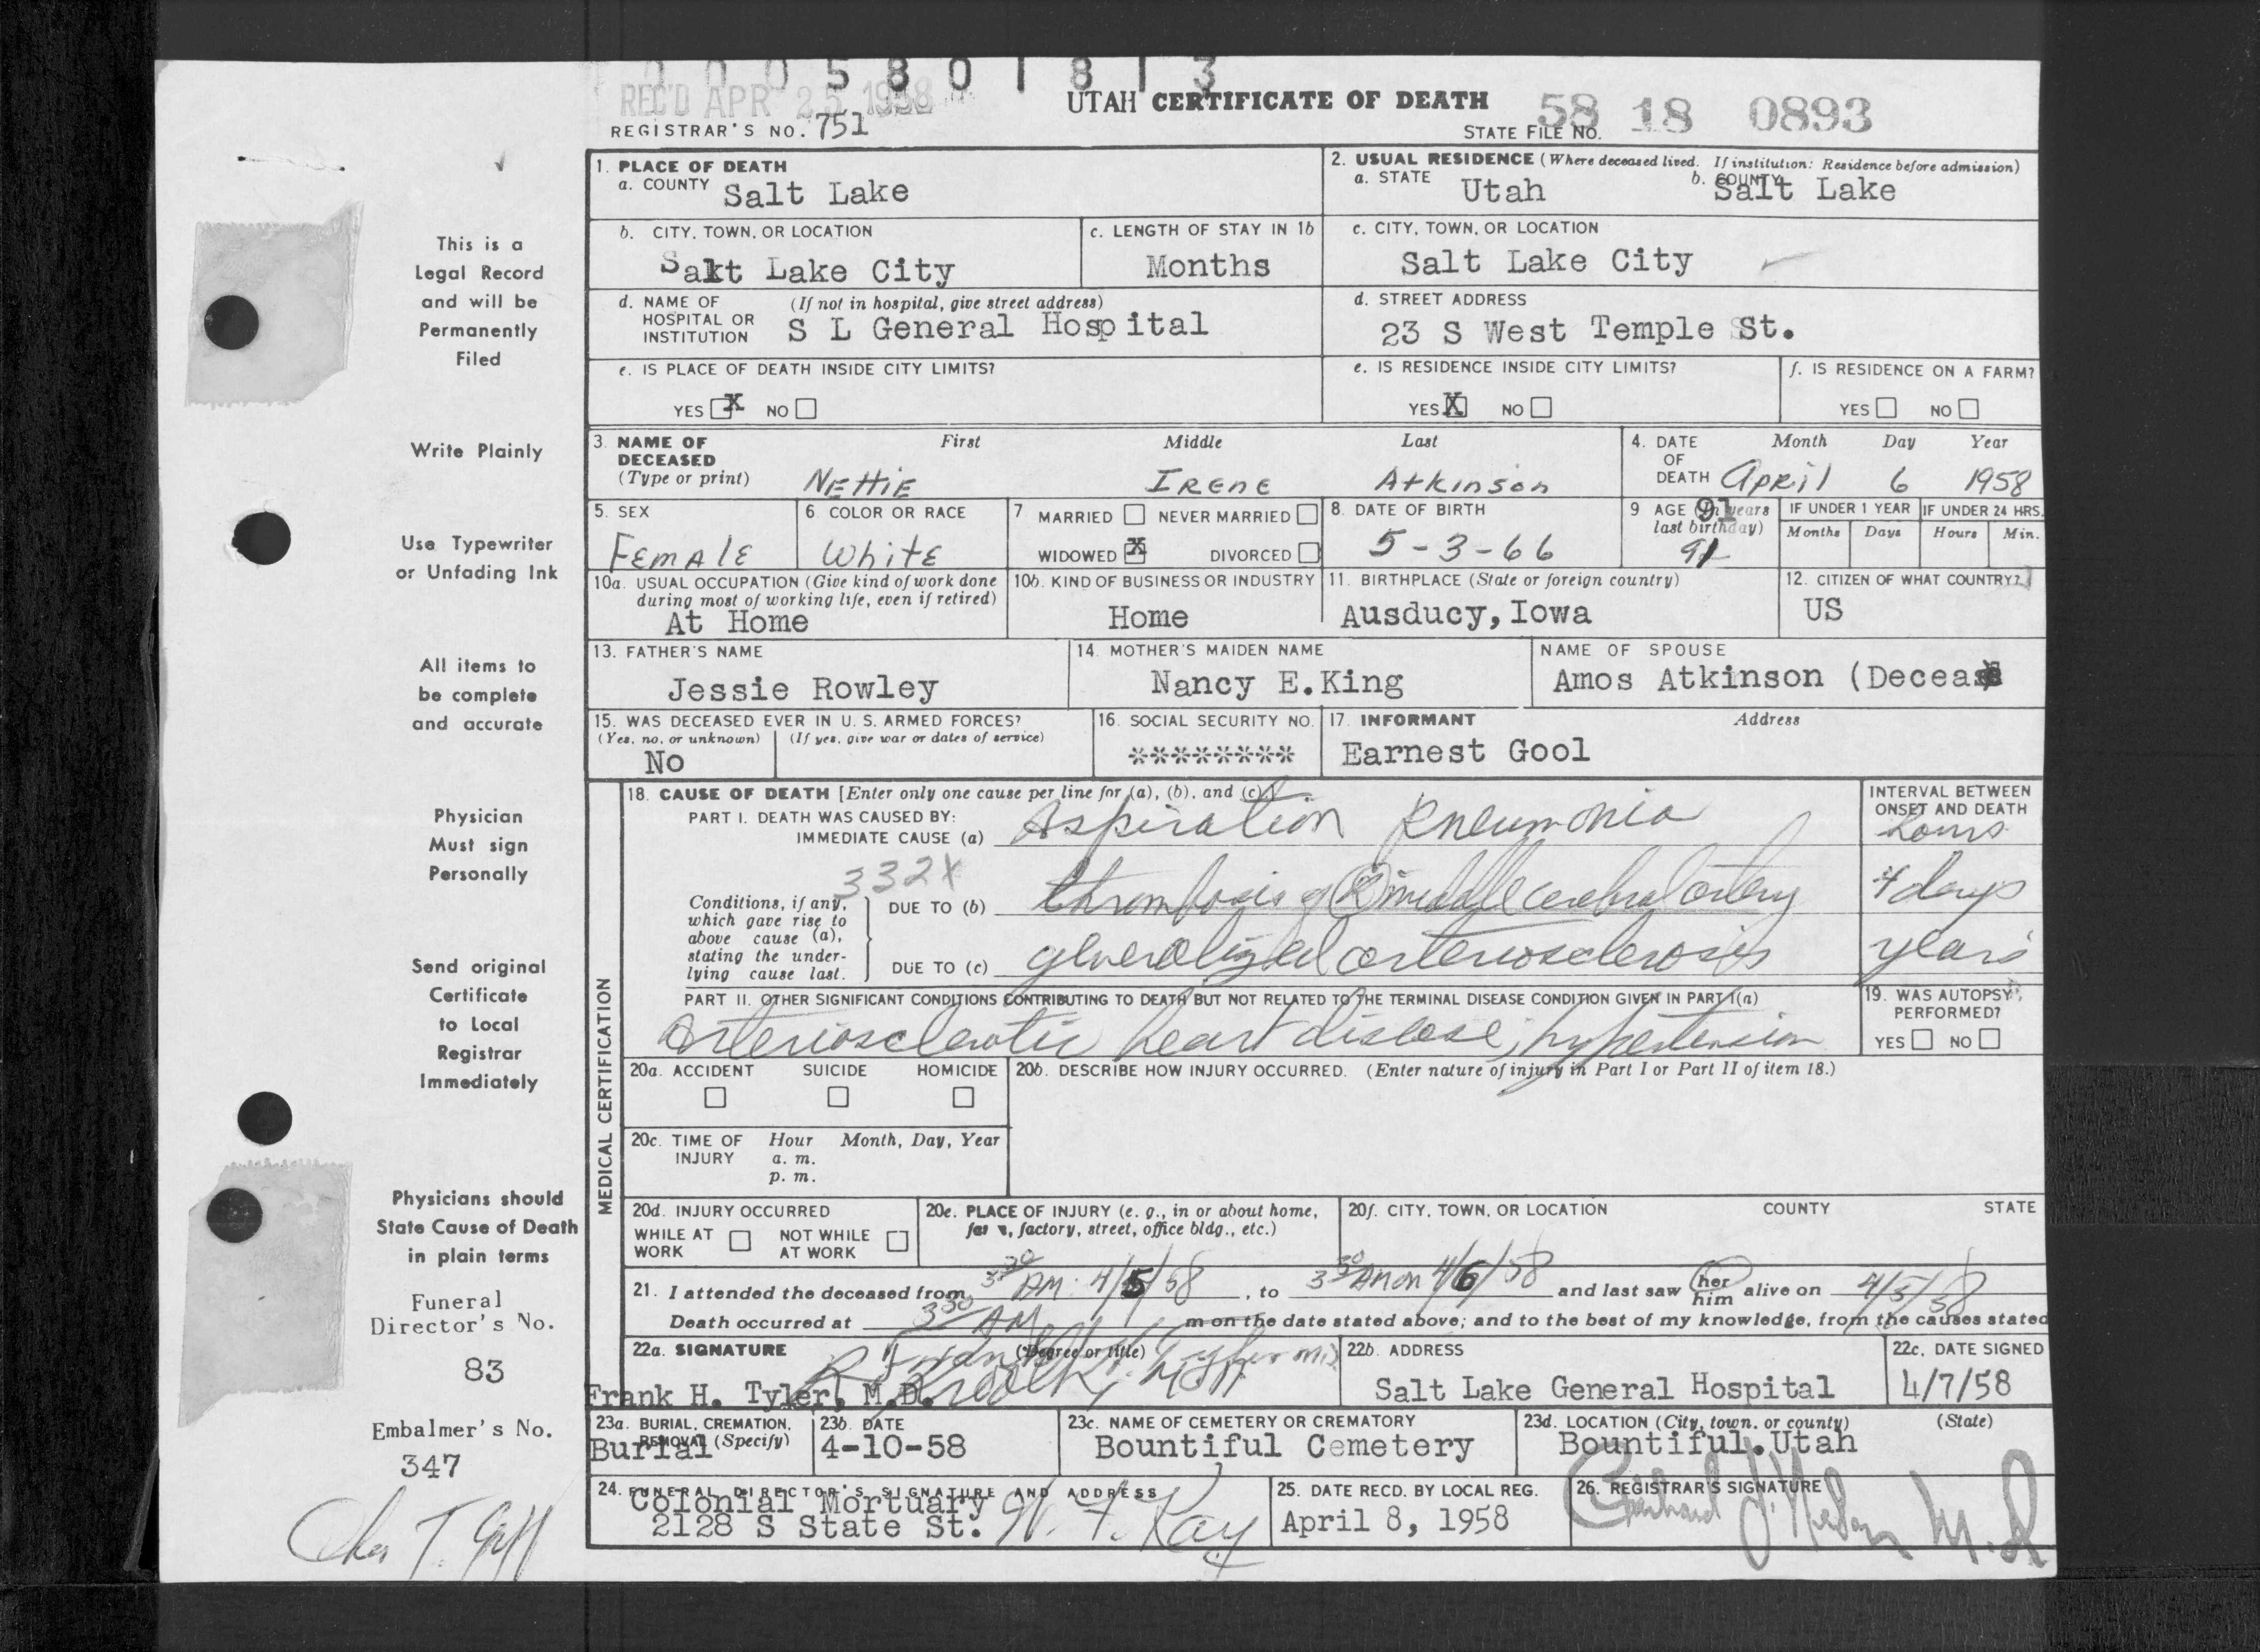 0 0 0 5 8 0 1 8 1 3
REC'D APR 25 1958
UTAH CERTIFICATE OF DEATH
58 18 0893
REGISTRAR'S NO. 751
STATE FILE NO.
This is a
Legal Record
and will be
Permanently
Filed
Write Plainly
Use Typewriter
or Unfading Ink
All items to
be complete
and accurate
Physician
Must sign
Personally
Send original
Certificate
to Local
Registrar
Immediately
Physicians should
State Cause of Death
in plain terms
Funeral
Director's No.
83
Embalmer's No.
347
1. PLACE OF DEATH
a. COUNTY Salt Lake
2. USUAL RESIDENCE (Where deceased lived. If institution: Residence before admission)
a. STATE Utah b. COUNTY Salt Lake
b. CITY, TOWN, OR LOCATION
Salt Lake City
c. LENGTH OF STAY IN 1b
Months
c. CITY, TOWN, OR LOCATION
Salt Lake City
d. NAME OF HOSPITAL OR INSTITUTION (If not in hospital, give street address)
S L General Hospital
d. STREET ADDRESS
23 S West Temple St.
e. IS PLACE OF DEATH INSIDE CITY LIMITS?
YES X NO
e. IS RESIDENCE INSIDE CITY LIMITS?
YES X NO
f. IS RESIDENCE ON A FARM?
YES NO
3. NAME OF DECEASED (Type or print)
First Middle Last
Nettie Irene Atkinson
4. DATE OF DEATH
Month Day Year
April 6 1958
5. SEX
Female
6. COLOR OR RACE
White
7 MARRIED NEVER MARRIED
WIDOWED X DIVORCED
8. DATE OF BIRTH
5-3-66
9 AGE (In years last birthday)
91
91
IF UNDER 1 YEAR
Months Days
IF UNDER 24 HRS.
Hours Min.
10a. USUAL OCCUPATION (Give kind of work done during most of working life, even if retired)
At Home
10b. KIND OF BUSINESS OR INDUSTRY
Home
11. BIRTHPLACE (State or foreign country)
Ausducy, Iowa
12. CITIZEN OF WHAT COUNTRY?
US
13. FATHER'S NAME
Jessie Rowley
14. MOTHER'S MAIDEN NAME
Nancy E. King
NAME OF SPOUSE
Amos Atkinson (Deceas
15. WAS DECEASED EVER IN U. S. ARMED FORCES?
(Yes, no, or unknown) (If yes, give war or dates of service)
No
16. SOCIAL SECURITY NO.
********
17. INFORMANT Address
Earnest Gool
MEDICAL CERTIFICATION
18. CAUSE OF DEATH [Enter only one cause per line for (a), (b), and (c).]
PART I. DEATH WAS CAUSED BY:
IMMEDIATE CAUSE (a) Aspiration Pneumonia
INTERVAL BETWEEN ONSET AND DEATH
hours
332X
Conditions, if any, which gave rise to above cause (a), stating the underlying cause last.
DUE TO (b) thrombosis of (R) middle cerebral artery
4 days
DUE TO (c) generalized arteriosclerosis
years
PART II. OTHER SIGNIFICANT CONDITIONS CONTRIBUTING TO DEATH BUT NOT RELATED TO THE TERMINAL DISEASE CONDITION GIVEN IN PART I(a)
Arteriosclerotic heart disease, hypertension
19. WAS AUTOPSY PERFORMED?
YES NO
20a. ACCIDENT SUICIDE HOMICIDE
20b. DESCRIBE HOW INJURY OCCURRED. (Enter nature of injury in Part I or Part II of item 18.)
20c. TIME OF INJURY Hour Month, Day, Year
a. m.
p. m.
20d. INJURY OCCURRED
WHILE AT WORK NOT WHILE AT WORK
20e. PLACE OF INJURY (e. g., in or about home, farm, factory, street, office bldg., etc.)
20f. CITY, TOWN, OR LOCATION COUNTY STATE
21. I attended the deceased from 3:30 AM 4/5/58, to 3:30 AM on 4/6/58 and last saw her him alive on 4/5/58
Death occurred at 3:30 AM m on the date stated above; and to the best of my knowledge, from the causes stated
22a. SIGNATURE (Degree or title)
Frank H. Tyler, M.D.
22b. ADDRESS
Salt Lake General Hospital
22c. DATE SIGNED
4/7/58
23a. BURIAL, CREMATION, REMOVAL (Specify)
Burial
23b. DATE
4-10-58
23c. NAME OF CEMETERY OR CREMATORY
Bountiful Cemetery
23d. LOCATION (City, town, or county) (State)
Bountiful. Utah
24. FUNERAL DIRECTOR'S SIGNATURE AND ADDRESS
Colonial Mortuary
2128 S State St.
25. DATE RECD. BY LOCAL REG.
April 8, 1958
26. REGISTRAR'S SIGNATURE